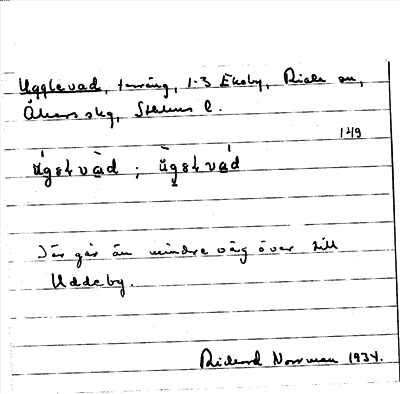 Ugglevad, terräng, 1-3 Ekeby, Riala sn,
Åkers skg, Sthlms l.
149
ùgɛɫvàd ; ùgɛɫvád
Där går än mindre väg över till
Uddeby.
Rickard Norrman 1934.